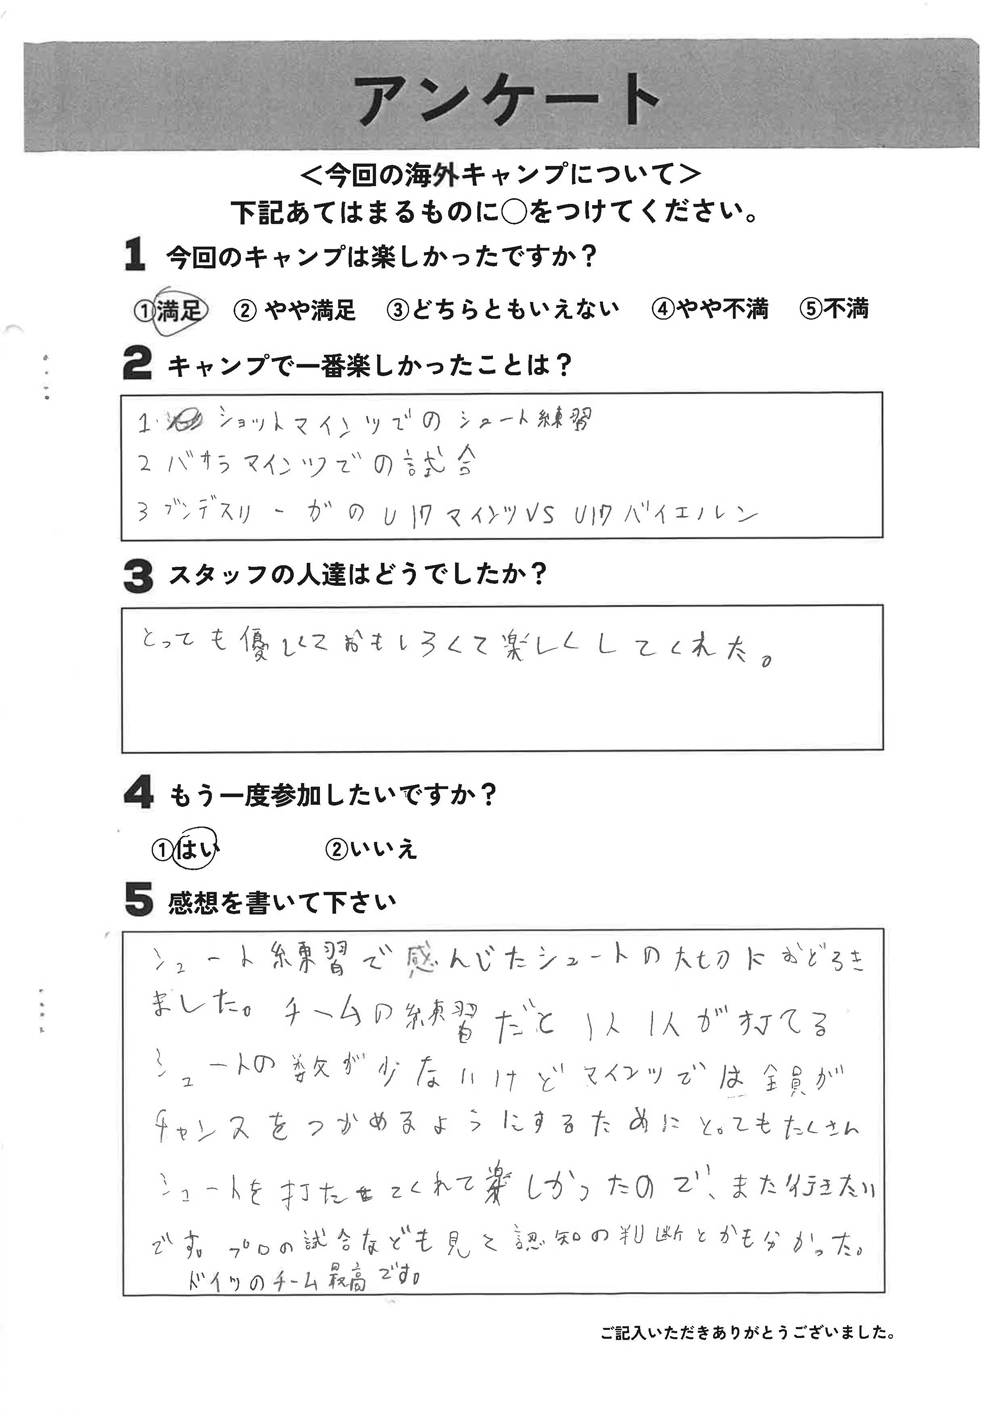 アンケート
＜今回の海外キャンプについて＞
下記あてはまるものに○をつけてください。
1 今回のキャンプは楽しかったですか？
①満足 ② やや満足 ③どちらともいえない ④やや不満 ⑤不満
2 キャンプで一番楽しかったことは？
1. ショットマインツでのシュート練習
2 バサラマインツでの試合
3 ブンデスリーがのU17マインツVS U17バイエルン
3 スタッフの人達はどうでしたか？
とっても優しくておもしろくて楽しくしてくれた。
4 もう一度参加したいですか？
①はい ②いいえ
5 感想を書いて下さい
シュート練習で感んじたシュートの大切におどろき
ました。チームの練習だと1人1人が打てる
シュートの数が少ないけどマインツでは全員が
チャンスをつかめるようにするためにとってもたくさん
シュートを打たせてくれて楽しかったので、また行きたい
です。プロの試合なども見て認知の判断とかも分かった。
ドイツのチーム最高です。
ご記入いただきありがとうございました。